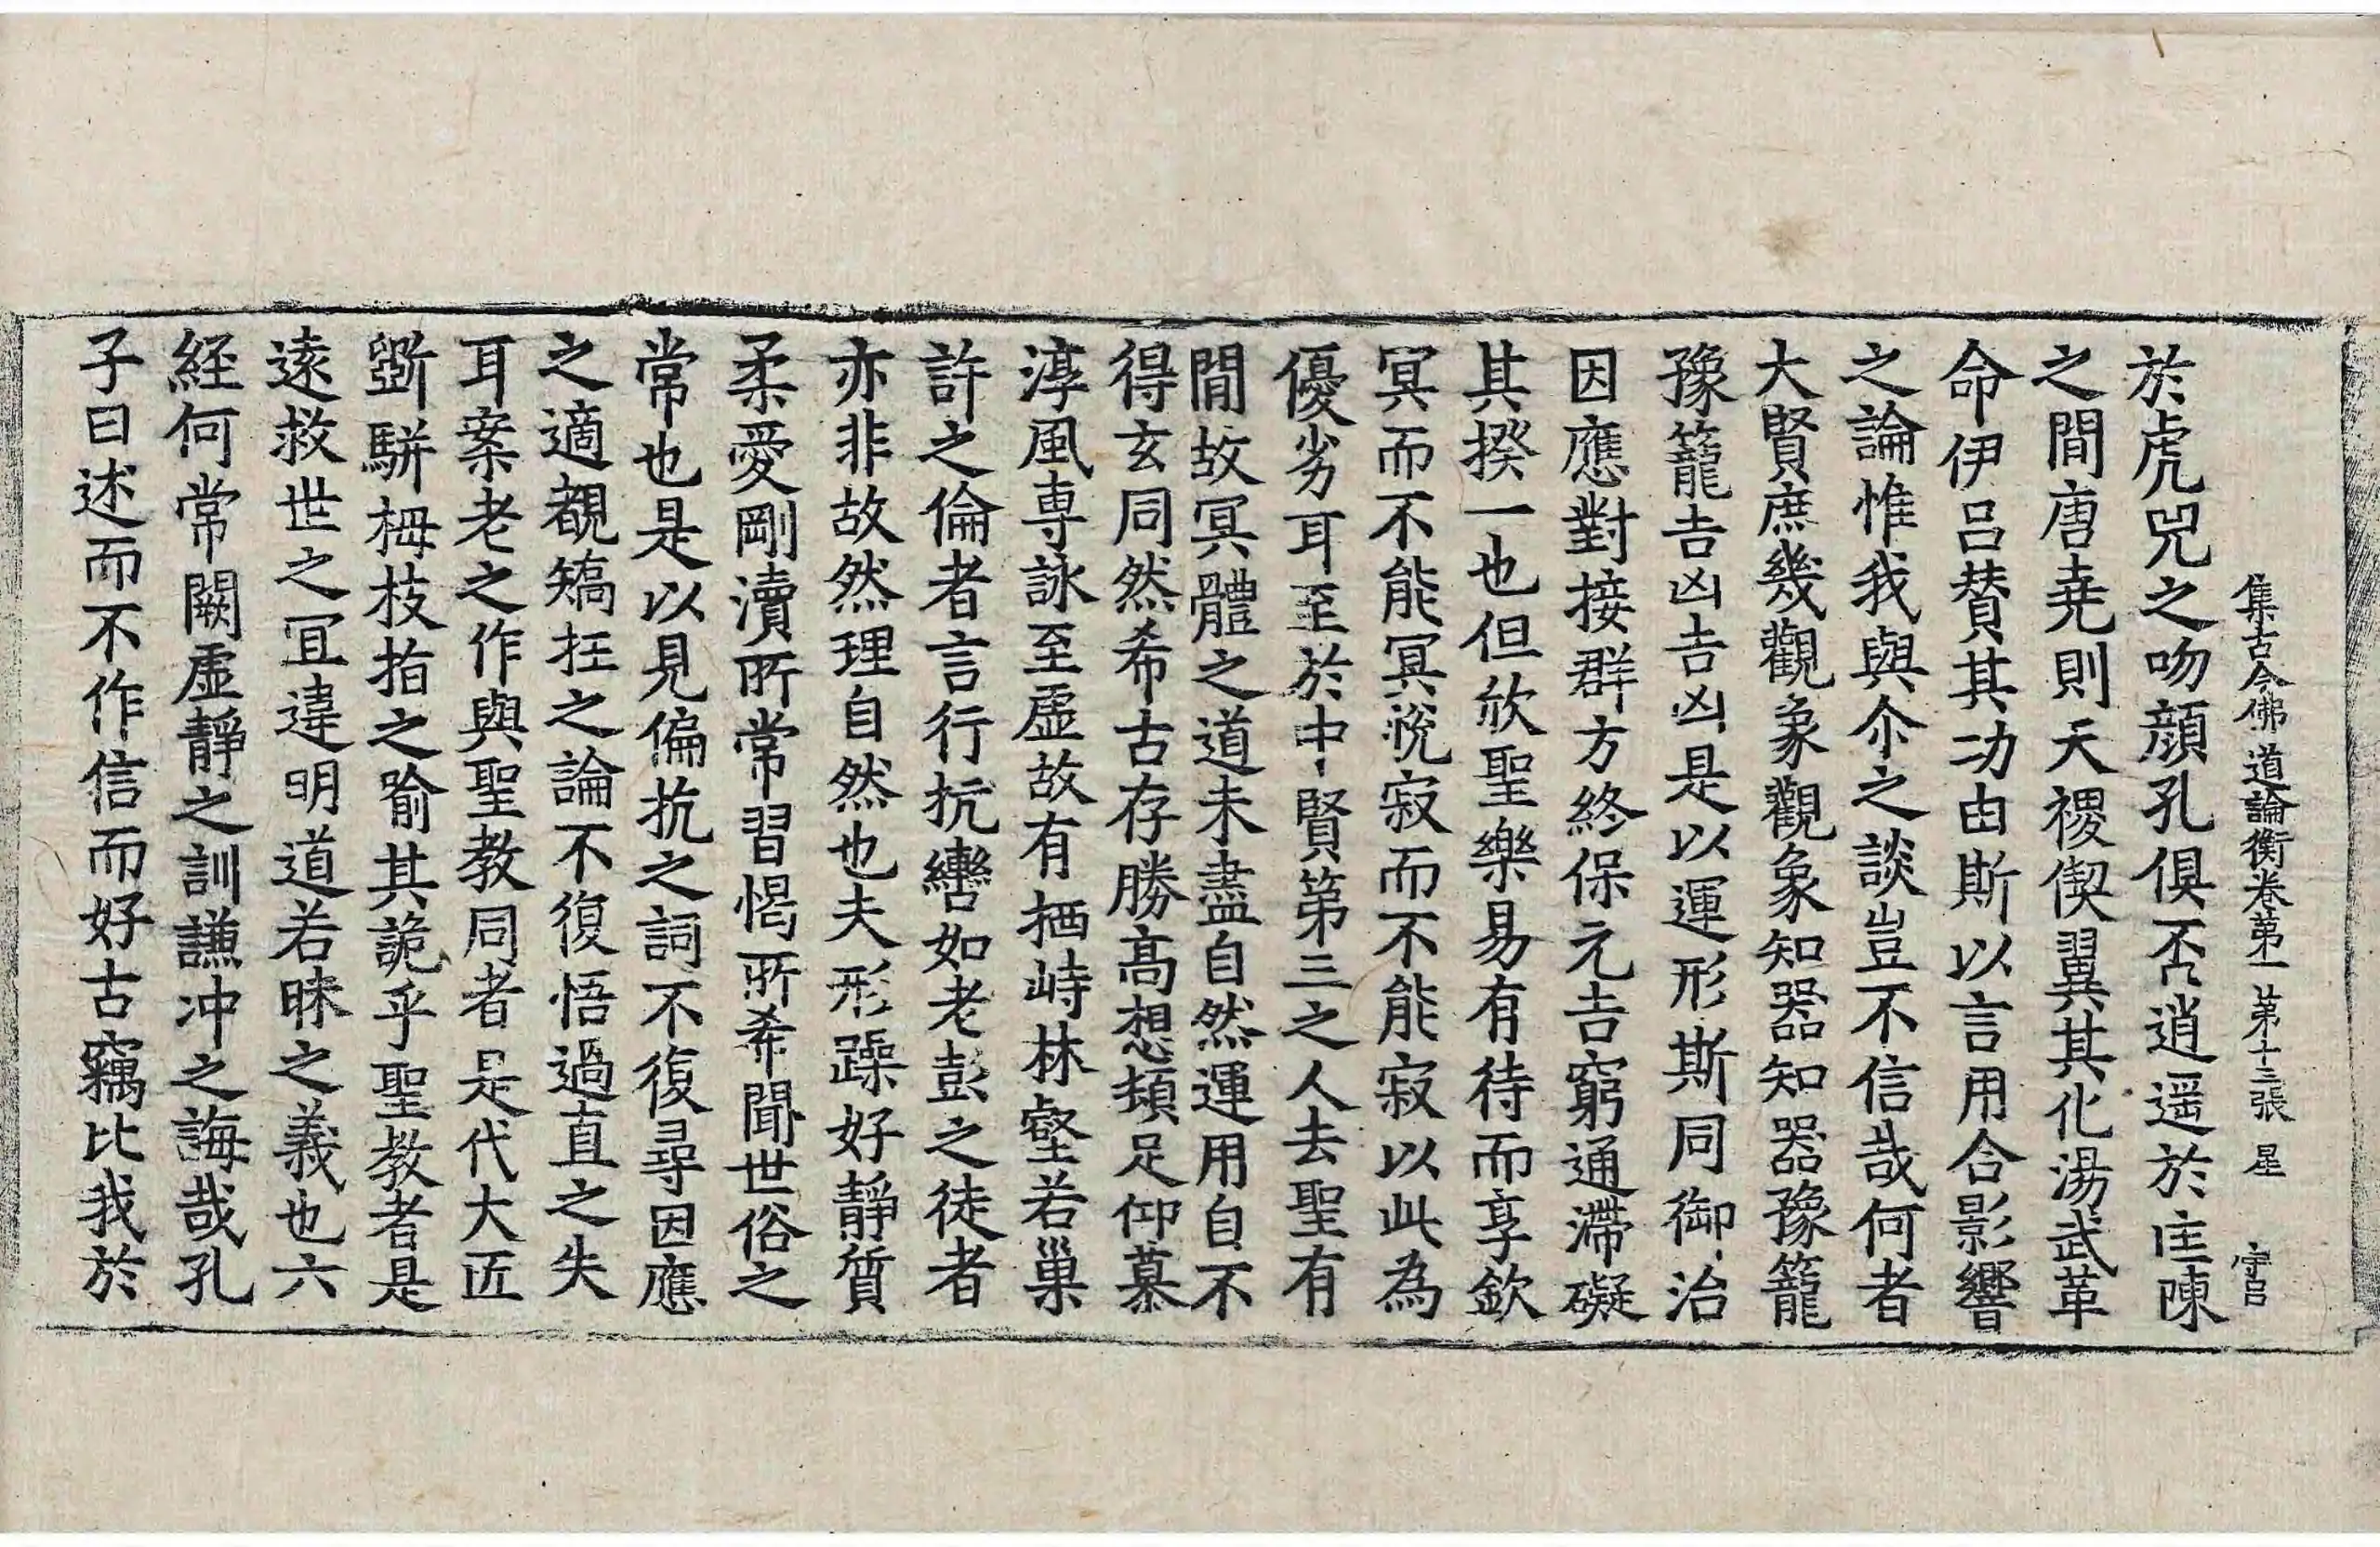 集古今佛道論衡卷第一 第十三張 星 守呂
於虎兕之吻顔孔俱否逍遥於匡陳
之間唐堯則天禝偰翼其化湯武革
命伊吕賛其功由斯以言用合影響
之論惟我與尒之談豈不信哉何者
大賢庶幾觀象觀象知器知器豫籠
豫籠吉凶吉凶是以運形斯同御治
因應對接群方終保元吉窮通滯礙
其揆一也但欣聖樂易有待而享欽
冥而不能冥恱寂而不能寂以此為
優劣耳至於中賢第三之人去聖有
間故冥體之道未盡自然運用自不
得玄同然希古存勝髙想頻足仰慕
淳風専詠至虛故有栖峙林壑若巢
許之倫者言行抗轡如老彭之徒者
亦非故然理自然也夫形躁好靜質
柔愛剛瀆所常習愒所希聞世俗之
常也是以見偏抗之詞不復尋因應
之適覩矯抂之論不復悟過直之失
耳案老之作與聖教同者是代大匠
斲騈栂枝指之喻其詭乎聖教者是
逺救世之冝違明道若昧之義也六
経何常闕虛靜之訓謙冲之誨哉孔
子曰述而不作信而好古竊比我於